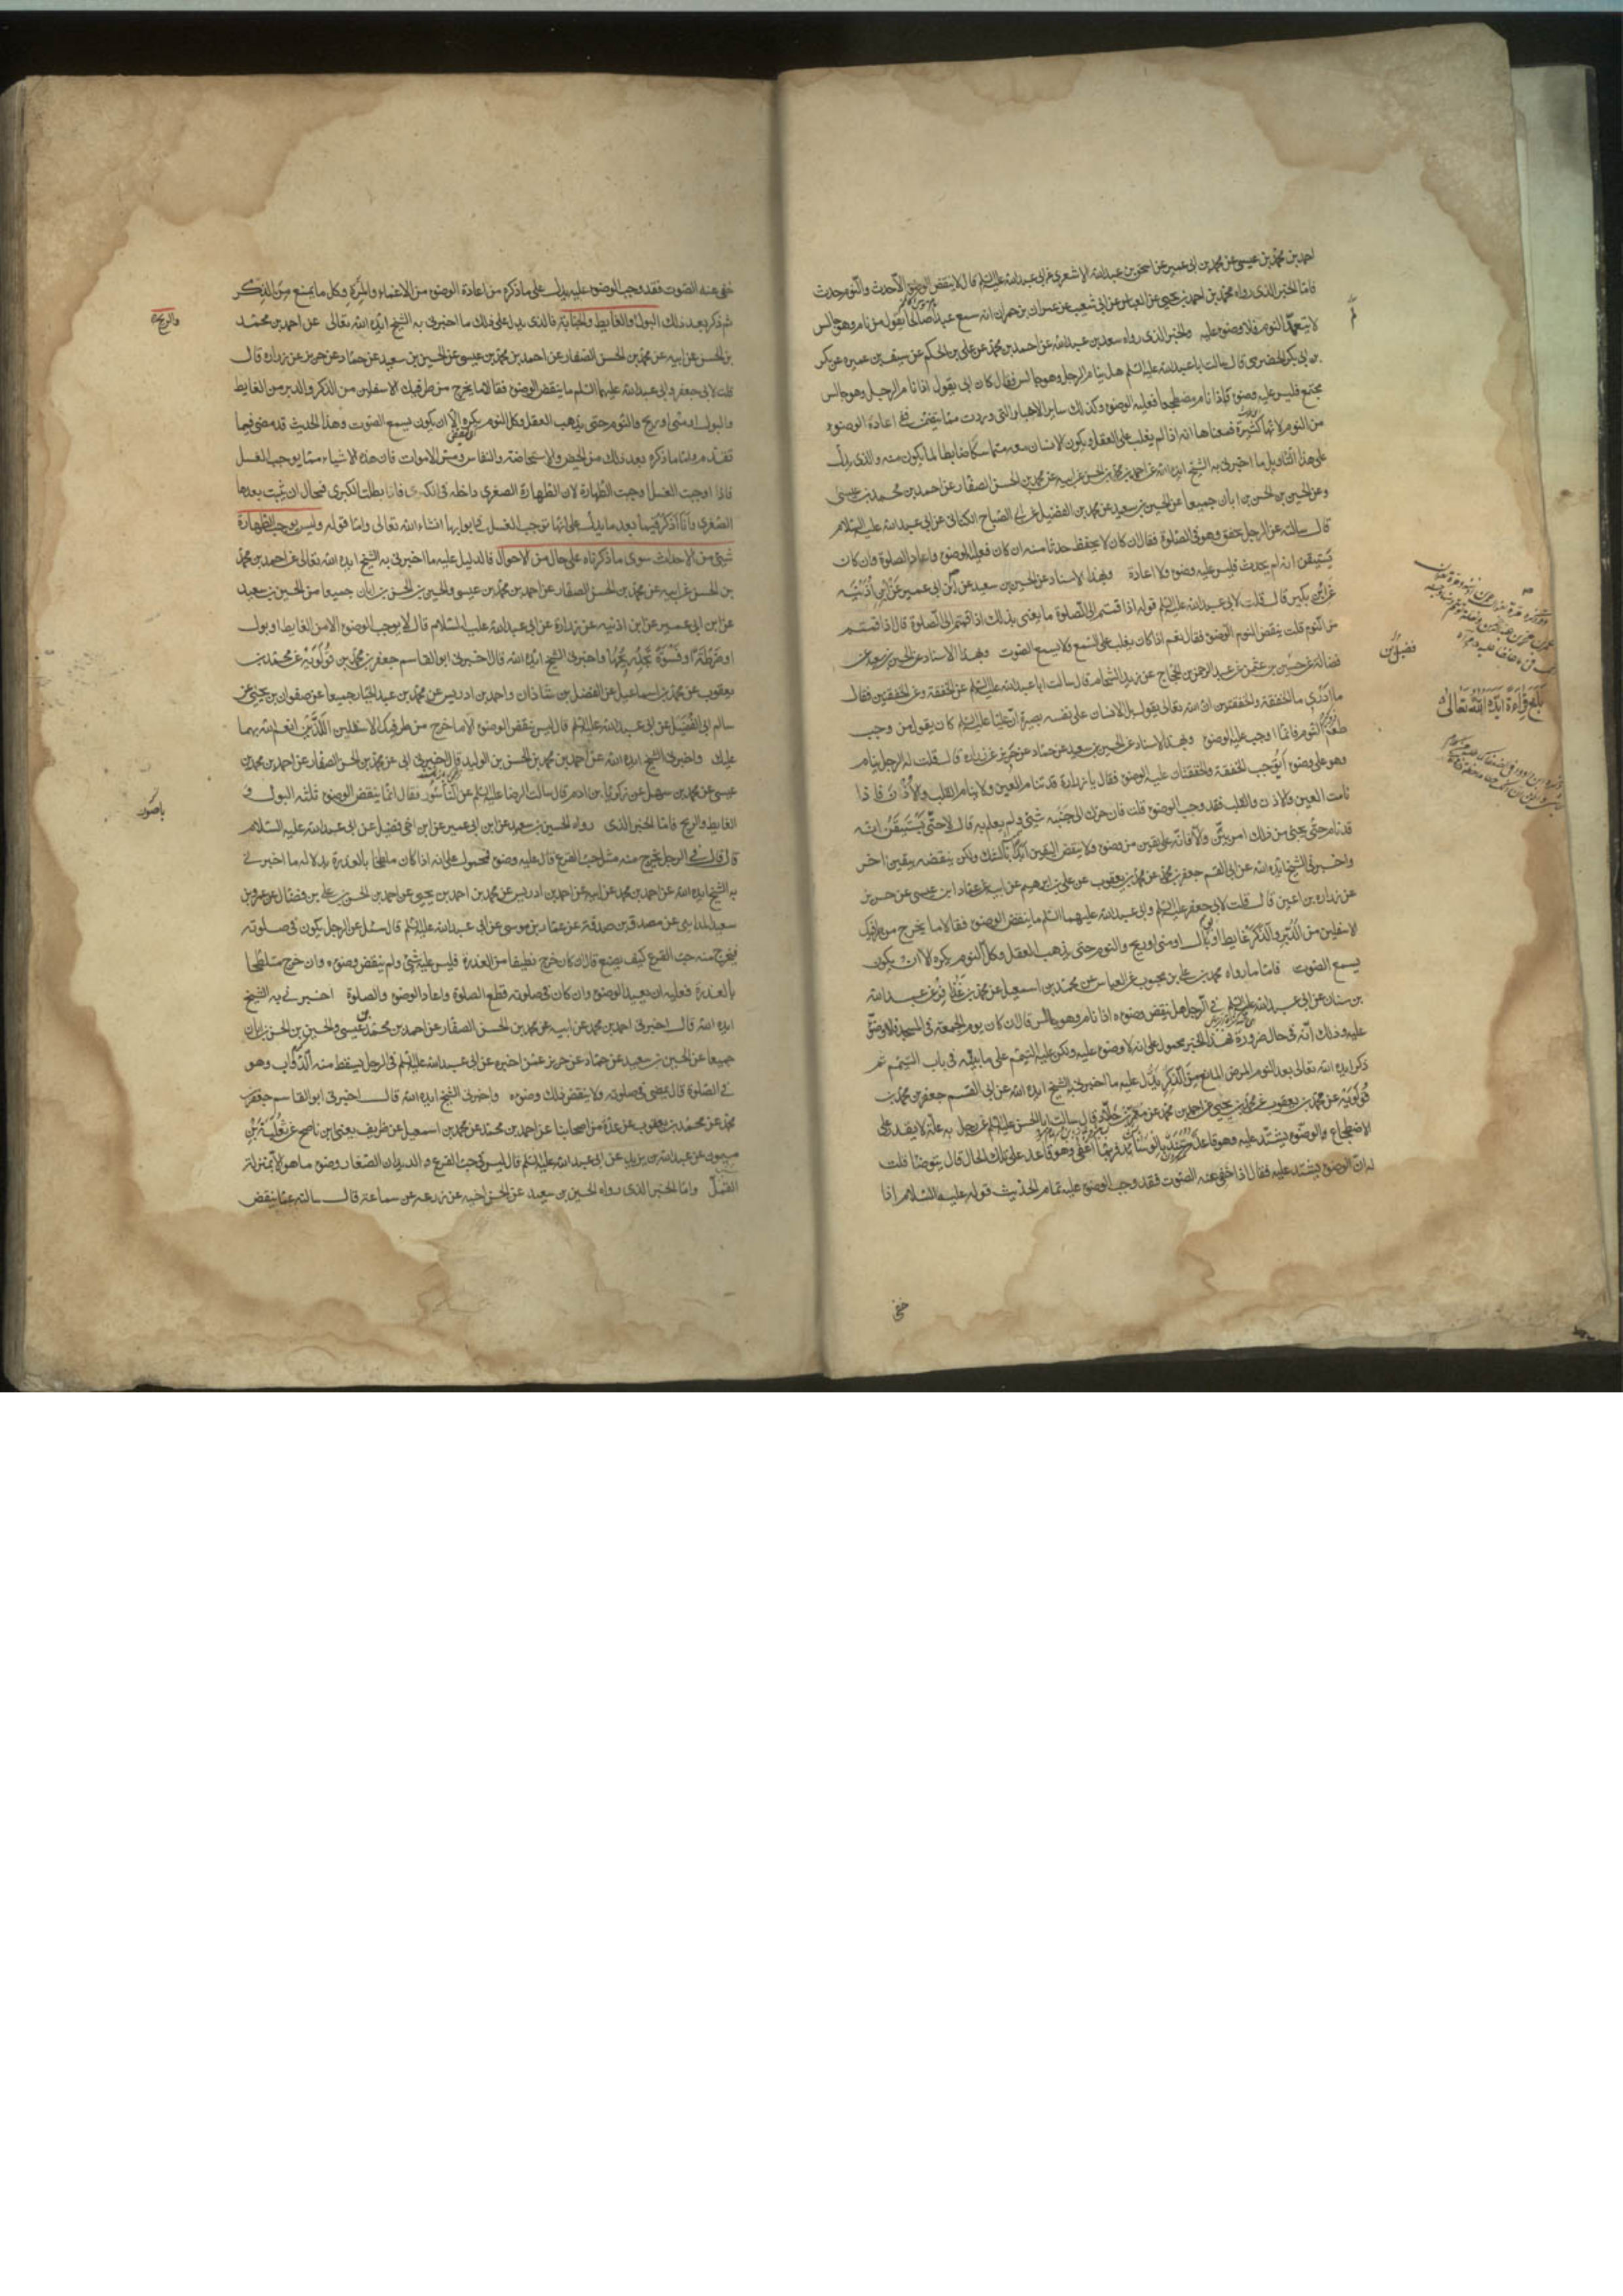 احمد بن محمد بن عيسى عن محمد بن ابى عمير عن اسحق بن عبدالله الاشعرى عن ابى عبدالله عليه السلم قال لا ينقض الوضوء الا حدث والنوم حدث
فاما الخبر الذى رواه محمد بن احمد بن يحيى عن العباس عن ابى شعيب عن عمران بن حمران انه سمع عبدا صالحا يقول من نام وهو جالس
لا يتعمد النوم فلا وضوء عليه والخبر الذى رواه سعد بن عبدالله عن احمد بن محمد عن على بن الحكم عن سيف بن عميره عن بكر
بن ابى بكر الحضرمى قال سالت ابا عبدالله عليه السلم هل ينام الرجل وهو جالس فقال كان ابى يقول اذا نام الرجل وهو جالس
مجتمع فليس عليه وضوء واذا نام مضطجعا فعليه الوضوء وكذلك ساير الاخبار التى وردت مما يتضمن نفى اعادة الوضوء
من النوم لانها كثيرة فمعناها انه اذا لم يغلب على العقل ويكون الانسان معه متماسكا ضابطا لما يكون منه والذى يدل
على هذا التاويل ما اخبرنى به الشيخ ايده الله عن احمد بن محمد بن الحسن عن ابيه عن محمد بن الحسن الصفار عن احمد بن محمد بن عيسى
وعن الحسين بن الحسن بن ابان جميعا عن الحسين بن سعيد عن محمد بن الفضيل عن ابى الصباح الكنانى عن ابى عبدالله عليه السلام
قال سالته عن الرجل يخفق وهو فى الصلوة فقال ان كان لا يحفظ حدثا منه ان كان فعليه الوضوء واعاد الصلوة وان كان
يستيقن انه لم يحدث فليس عليه وضوء ولا اعادة وبهذا الاسناد عن الحسين بن سعيد عن ابن ابى عمير عن ابن اذينه
عن ابن بكير قال قلت لابى عبدالله عليه السلم قوله اذا قمتم الى الصلوة ما يعنى بذلك اذا قمتم الى الصلوة قال اذا قمتم
من النوم قلت ينقض النوم الوضوء فقال نعم اذا كان يغلب على السمع ولا يسمع الصوت وبهذا الاسناد عن الحسين بن سعيد عن
فضالة عن حسين بن عثمن عن عبد الرحمن بن الحجاج عن زيد الشحام قال سالت ابا عبدالله عليه السلم عن الخفقة والخفقتين فقال
ما ادرى ما الخفقة والخفقتين ان الله تعالى يقول بل الانسان على نفسه بصيرة ان عليا عليه السلم كان يقول من وجد
طعم النوم فانما اوجب عليه الوضوء وبهذا الاسناد عن الحسين بن سعيد عن حماد عن حريز عن زراره قال قلت له الرجل ينام
وهو على وضوء اتوجب الخفقة والخفقتان عليه الوضوء فقال يا زرارة قد تنام العين ولا ينام القلب والاذن فاذا
نامت العين والاذن والقلب فقد وجب الوضوء قلت فان حرك الى جنبه شئ ولم يعلم به قال لا حتى يستيقن انه
قد نام حتى يجئ من ذلك امر بين والا فانه على يقين من وضوءه ولا ينقض اليقين ابدا بالشك ولكن ينقضه بيقين اخر
واخبرنى الشيخ ايده الله عن ابى القسم جعفر بن محمد عن محمد بن يعقوب عن على بن ابرهيم عن ابيه عن حماد ابن عيسى عن حريز
عن زراره بن اعين قال قلت لابى جعفر عليه السلم وابى عبدالله عليهما السلم ما ينقض الوضوء فقالا ما يخرج من طرفيك
الاسفلين من الدبر والذكر غايط او بول او منى او ريح والنوم حتى يذهب العقل وكل النوم يكره الا ان يكون
يسمع الصوت فاما ما رواه محمد بن على بن محبوب عن العباس عن محمد بن اسمعيل عن محمد بن عذافر عن عبدالله
بن سنان عن ابى عبدالله عليه السلم فى الرجل هل ينقض وضوءه اذا نام وهو جالس قال ان كان يوم الجمعة فى المسجد فلا وضوء
عليه وذلك انه فى حال ضرورة فهذا الخبر محمول على انه لا وضوء عليه ولكن عليه التيمم على ما نبينه فى باب التيمم ثم
ذكر ايده الله تعالى بعد النوم المرض المانع من الذكر يدل عليه ما اخبرنى به الشيخ ايده الله عن ابى القسم جعفر بن محمد بن
قولويه عن محمد بن يعقوب عن محمد بن يحيى عن احمد بن محمد عن معمر بن خلاد قال سالت ابا الحسن عليه السلم عن رجل به علة لا يقدر على
الاضطجاع والوضوء يشتد عليه وهو قاعد مستند بالوسائد فربما اغفى وهو قاعد على تلك الحال قال يتوضا قلت
له ان الوضوء يشتد عليه فقال اذا خفى عنه الصوت فقد وجب الوضوء عليه تمام الحديث قوله عليه السلام اذا
خفى
فضيل بن
بلغ قراءة ايده الله تعالى
خفى عنه الصوت فقد وجب الوضوء عليه يدل على ما ذكره من اعادة الوضوء من الاغماء والمرة وكل ما يمنع من الذكر
ثم ذكر بعد ذلك البول والغايط والجنابة فالذى يدل على ذلك ما اخبرنى به الشيخ ايده الله تعالى عن احمد بن محمد
بن الحسن عن ابيه عن محمد بن الحسن الصفار عن احمد بن محمد بن عيسى عن الحسين بن سعيد عن حماد عن حريز عن زراره قال
قلت لابى جعفر وابى عبدالله عليهما السلم ما ينقض الوضوء فقالا ما يخرج من طرفيك الاسفلين من الذكر والدبر من الغايط
والبول او منى او ريح والنوم حتى يذهب العقل وكل النوم يكره الا ان يكون يسمع الصوت وهذا الحديث قد مضى فيما
تقدم واما ما ذكره بعد ذلك من الحيض والاستحاضة والنفاس ومس الاموات فان هذه الاشياء مما يوجب الغسل
فاذا اوجبت الغسل اوجبت الطهارة لان الطهارة الصغرى داخله فى الكبرى فاذا بطلت الكبرى فمحال ان تثبت بعدها
الصغرى وانا اذكر فيما بعد ما يدل على انها توجب الغسل فى ابوابها انشاء الله تعالى واما قوله وليس يوجب الطهارة
شئ من الاحداث سوى ما ذكرناه على حال من الاحوال فالدليل عليه ما اخبرنى به الشيخ ايده الله تعالى عن احمد بن محمد
بن الحسن عن ابيه عن محمد بن الحسن الصفار عن احمد بن محمد بن عيسى والحسين بن الحسن بن ابان جميعا عن الحسين بن سعيد
عن ابن ابى عمير عن ابن اذينه عن زرارة عن ابى عبدالله عليه السلام قال لا يوجب الوضوء الا من الغايط او بول
او ضرطة او فسوة تجد ريحها واخبرنى الشيخ ايده الله قال اخبرنى ابو القاسم جعفر بن محمد بن قولويه عن محمد بن
يعقوب عن محمد بن اسماعيل عن الفضل بن شاذان واحمد بن ادريس عن محمد بن عبد الجبار جميعا عن صفوان بن يحيى عن
سالم ابى الفضيل عن ابى عبدالله عليه السلم قال ليس ينقض الوضوء الا ما خرج من طرفيك الاسفلين اللذين انعم الله بهما
عليك واخبرنى الشيخ ايده الله عن احمد بن محمد بن الحسن بن الوليد قال اخبرنى ابى عن محمد بن الحسن الصفار عن احمد بن محمد بن
عيسى عن محمد بن سهل عن زكريا بن ادم قال سالت الرضا عليه السلم عن الناسور فقال انما ينقض الوضوء ثلثه البول و
الغايط والريح فاما الخبر الذى رواه الحسين بن سعيد عن ابن ابى عمير عن ابن اخى فضيل عن ابى عبدالله عليه السلام
قال قال فى الرجل يخرج منه مثل حب القرع قال عليه وضوء فمحمول على انه اذا كان ملطخا بالعذرة بدلاله ما اخبرنى
به الشيخ ايده الله عن احمد بن محمد عن ابيه عن احمد بن ادريس عن محمد بن احمد بن يحيى عن احمد بن الحسن بن على بن فضال عن عمرو بن
سعيد المداينى عن مصدق بن صدقة عن عمار بن موسى عن ابى عبدالله عليه السلم قال سئل عن الرجل يكون فى صلوته
فيخرج منه حب القرع كيف يصنع قال ان كان خرج نظيفا من العذرة فليس عليه شئ ولم ينقض وضوءه وان خرج متلطخا
بالعذرة فعليه ان يعيد الوضوء وان كان فى صلوته قطع الصلوة واعاد الوضوء والصلوة اخبرنى به الشيخ
ايده الله قال اخبرنى احمد بن محمد عن ابيه عن محمد بن الحسن الصفار عن احمد بن محمد بن عيسى والحسين بن الحسن بن ابان
جميعا عن الحسين بن سعيد عن حماد عن حريز عمن اخبره عن ابى عبدالله عليه السلم فى الرجل يسقط منه الدواب وهو
فى الصلوة قال يمضى فى صلوته ولا ينقض ذلك وضوءه واخبرنى الشيخ ايده الله قال اخبرنى ابو القاسم جعفر بن
محمد عن محمد بن يعقوب عن عدة من اصحابنا عن احمد بن محمد عن محمد بن اسمعيل عن ظريف يعنى ابن ناصح عن ثعلبة بن
ميمون عن عبدالله بن يزيد عن ابى عبدالله عليه السلم قال ليس فى حب القرع والديدان الصغار وضوء ما هو الا بمنزلة
القمل واما الخبر الذى رواه الحسين بن سعيد عن الحسن اخيه عن زرعه عن سماعة قال سالته عما ينقض
والريح
باصور